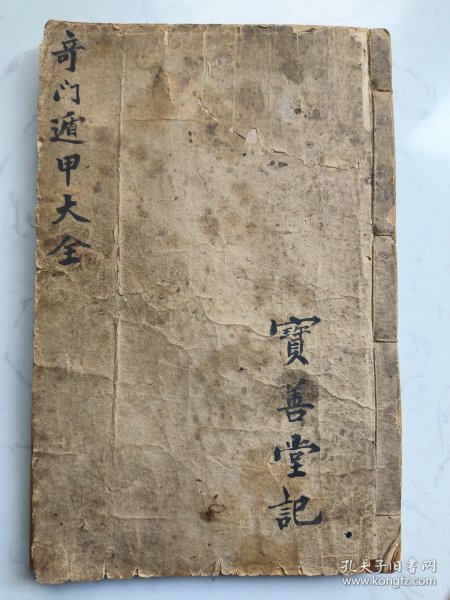 奇门遁甲大全
寶善堂記
孔夫子旧书网
www.kongfz.com